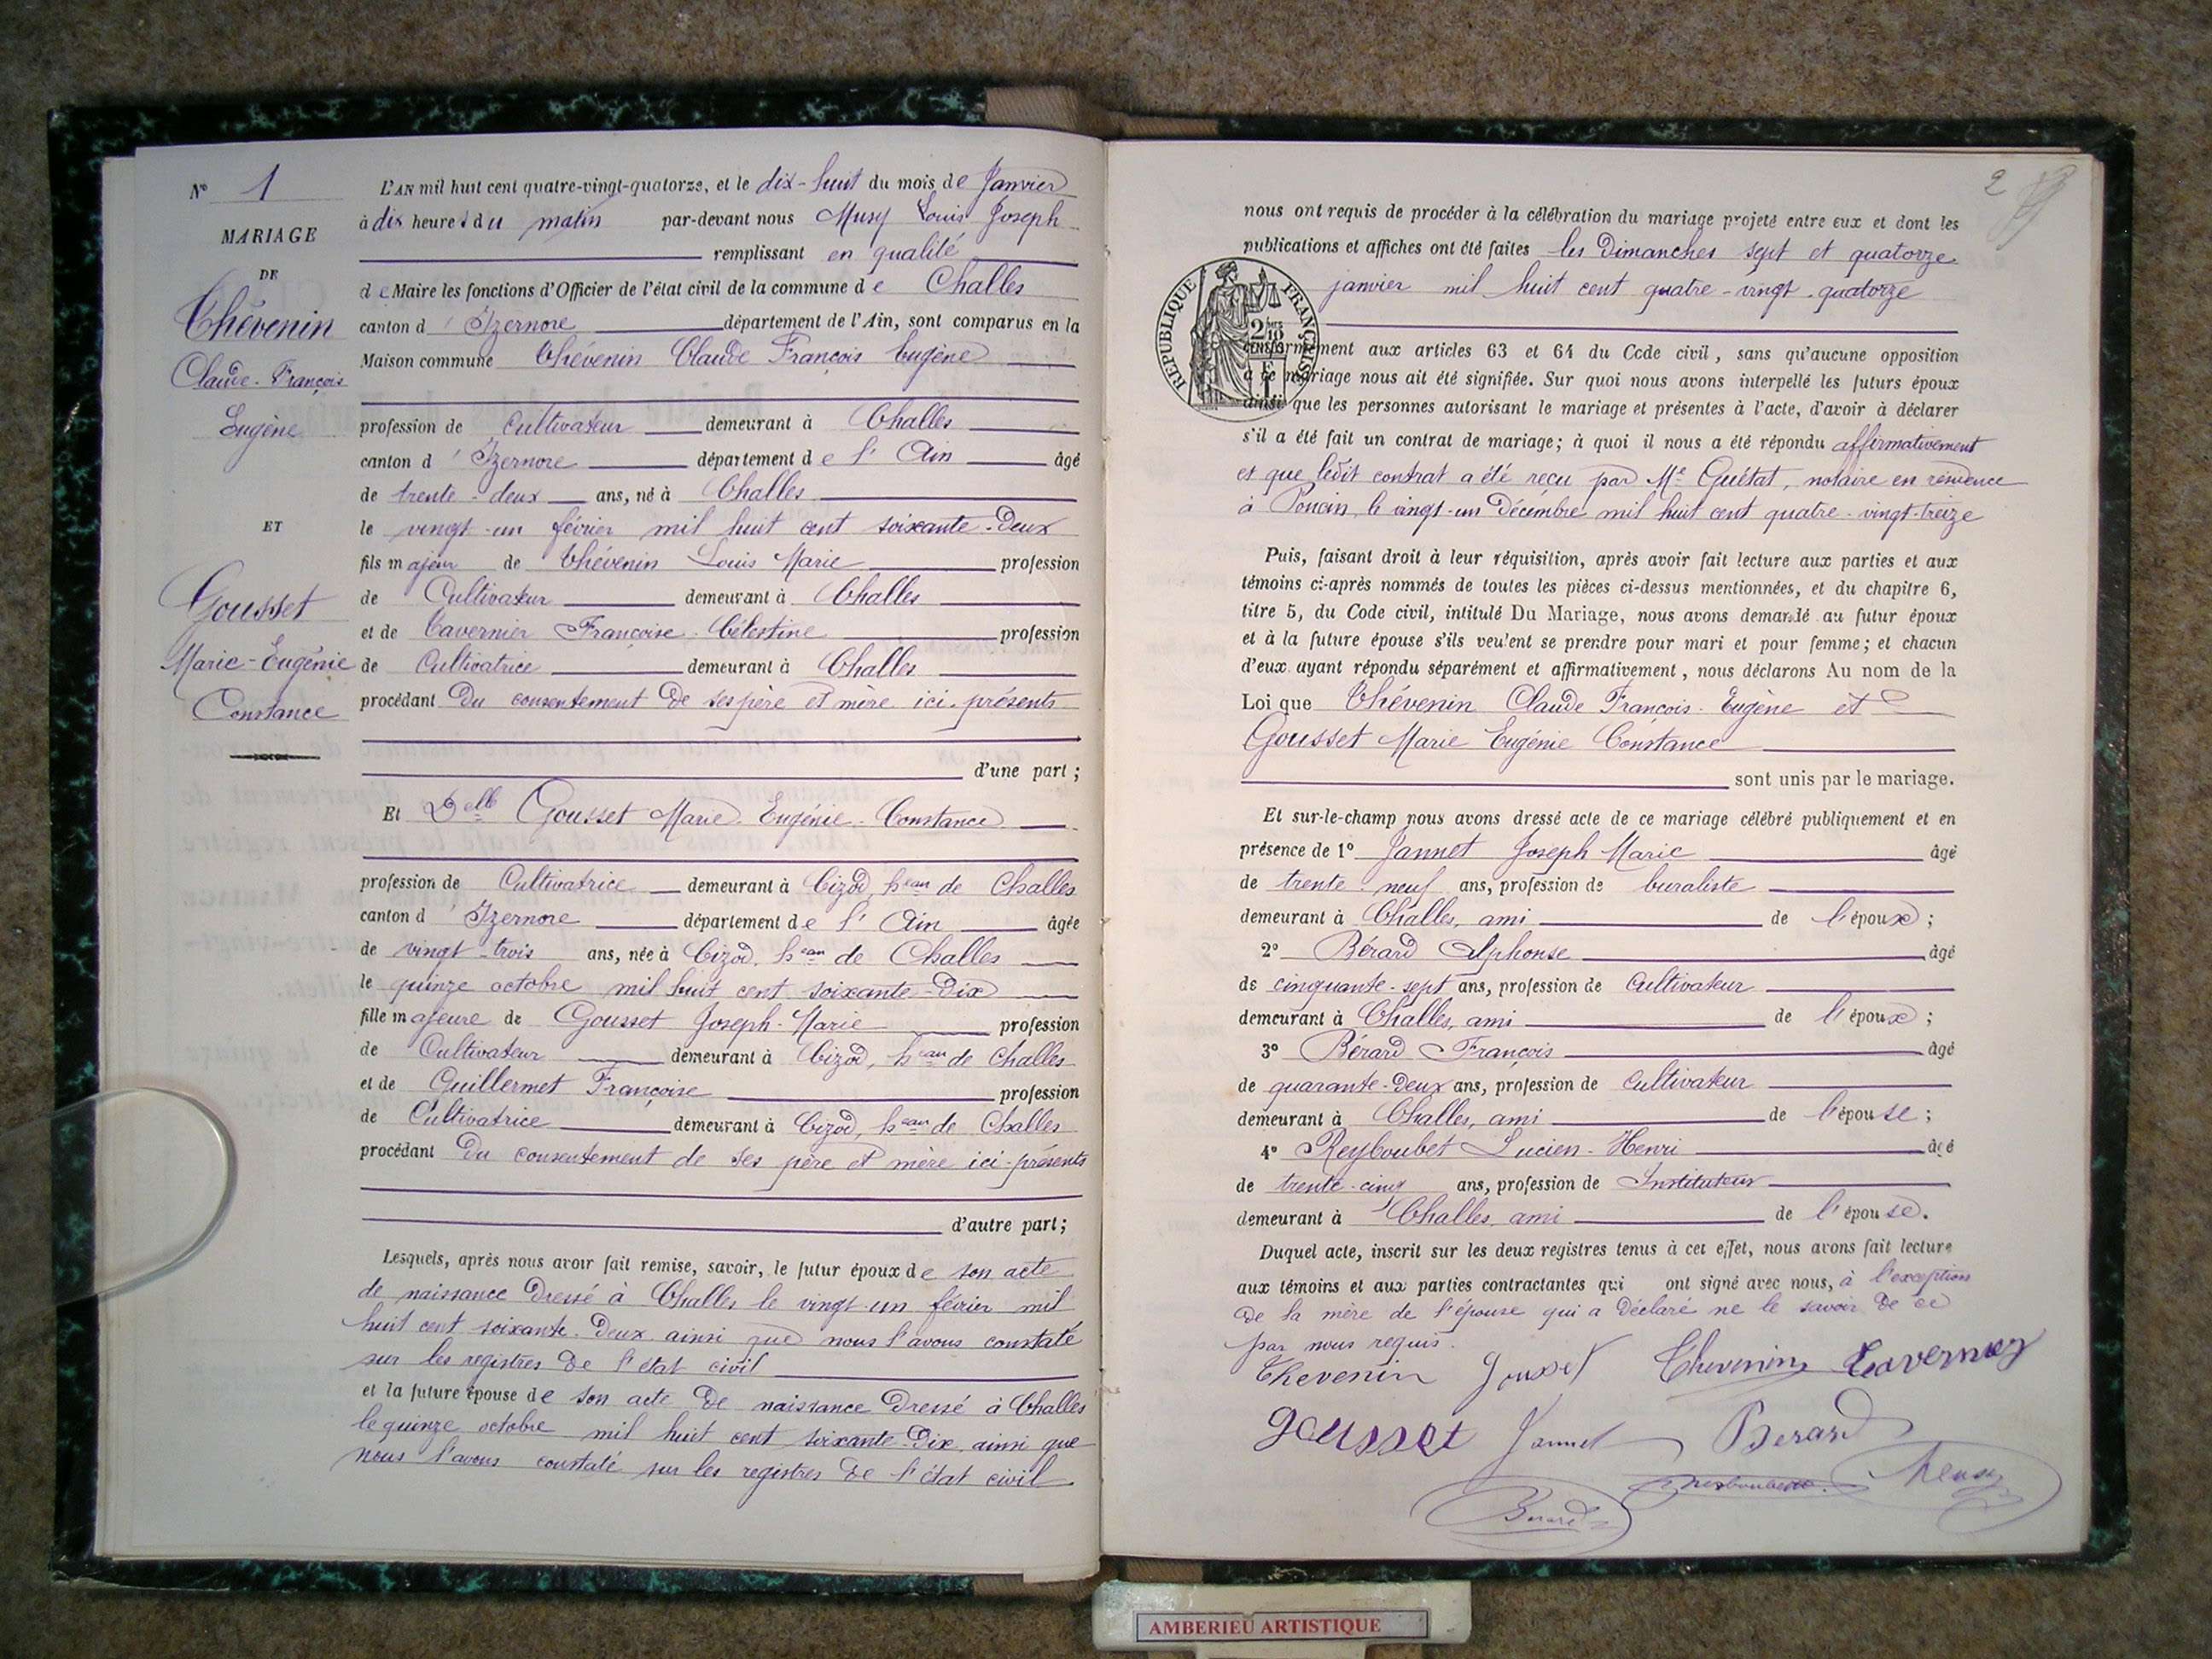 N° 1
MARIAGE
DE
Thévenin
Claude-François
Eugène
ET
Gousset
Marie-Eugénie
Constance
L'AN mil huit cent quatre-vingt-quatorze, et le dix-huit du mois de Janvier
à dix heures du matin par-devant nous Musy Louis Joseph
remplissant en qualité
de Maire les fonctions d'Officier de l'état civil de la commune de Challes
canton d'Izernore département de l'Ain, sont comparus en la
Maison commune Thévenin Claude François Eugène
profession de Cultivateur demeurant à Challes
canton d'Izernore département de l'Ain âgé
de trente-deux ans, né à Challes
le vingt-un février mil huit cent soixante-deux
fils majeur de Thévenin Louis Marie profession
de Cultivateur demeurant à Challes
et de Tavernier Françoise-Célestine profession
de Cultivatrice demeurant à Challes
procédant du consentement de ses père et mère ici-présents
d'une part ;
Et Delle Gousset Marie-Eugénie-Constance
profession de Cultivatrice demeurant à Cizod, heau de Challes
canton d'Izernore département de l'Ain âgée
de vingt-trois ans, née à Cizod, heau de Challes
le quinze octobre mil huit cent soixante-dix
fille majeure de Gousset Joseph-Marie profession
de Cultivateur demeurant à Cizod, heau de Challes
et de Guillermet Françoise profession
de Cultivatrice demeurant à Cizod, heau de Challes
procédant du consentement de ses père et mère ici-présents
d'autre part ;
Lesquels, après nous avoir fait remise, savoir, le futur époux de son acte
de naissance dressé à Challes le vingt-un février mil
huit cent soixante-deux ainsi que nous l'avons constaté
sur les registres de l'état civil
et la future épouse de son acte de naissance dressé à Challes
le quinze octobre mil huit cent soixante-dix ainsi que
nous l'avons constaté sur les registres de l'état civil
2
nous ont requis de procéder à la célébration du mariage projeté entre eux et dont les
publications et affiches ont été faites les dimanches sept et quatorze
janvier mil huit cent quatre-vingt-quatorze
RÉPUBLIQUE FRANÇAISE
2 MES 10
conformément aux articles 63 et 64 du Code civil, sans qu'aucune opposition
à ce mariage nous ait été signifiée. Sur quoi nous avons interpellé les futurs époux
ainsi que les personnes autorisant le mariage et présentes à l'acte, d'avoir à déclarer
s'il a été fait un contrat de mariage ; à quoi il nous a été répondu affirmativement
et que ledit contrat a été reçu par Me Guétat, notaire en résidence
à Poncin le vingt-un Décembre mil huit cent quatre-vingt-treize
Puis, faisant droit à leur réquisition, après avoir fait lecture aux parties et aux
témoins ci-après nommés de toutes les pièces ci-dessus mentionnées, et du chapitre 6,
titre 5, du Code civil, intitulé Du Mariage, nous avons demandé au futur époux
et à la future épouse s'ils veulent se prendre pour mari et pour femme ; et chacun
d'eux ayant répondu séparément et affirmativement, nous déclarons Au nom de la
Loi que Thévenin Claude François-Eugène et
Gousset Marie Eugénie Constance
sont unis par le mariage.
Et sur-le-champ nous avons dressé acte de ce mariage célébré publiquement et en
présence de 1° Jannet Joseph Marie âgé
de trente-neuf ans, profession de buraliste
demeurant à Challes, ami de l'époux ;
2° Bérard Alphonse âgé
de cinquante-sept ans, profession de Cultivateur
demeurant à Challes, ami de l'époux ;
3° Bérard François âgé
de quarante-deux ans, profession de Cultivateur
demeurant à Challes, ami de l'épouse ;
4° Reyboubet Lucien-Henri âgé
de trente-cinq ans, profession de Instituteur
demeurant à Challes, ami de l'épouse.
Duquel acte, inscrit sur les deux registres tenus à cet effet, nous avons fait lecture
aux témoins et aux parties contractantes qui ont signé avec nous, à l'exception
de la mère de l'épouse qui a déclaré ne le savoir de ce
par nous requis.
Thevenin Gousset Thevenin Tavernier
gousset Jannet Berard
Berard Reyboubet Musy
AMBERIEU ARTISTIQUE